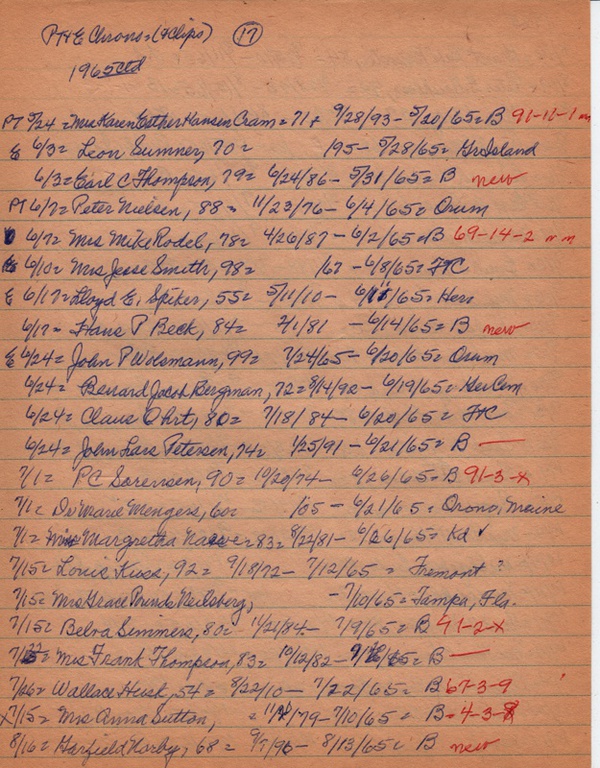 PT & E Chronos (& Clips) 17
1965 ctd
PT 5/24 = Mrs Karen Esther Hansen Cram = 71+ 9/28/93 - 5/20/65 = B 91-11-1
E 6/3 = Leon Sumner, 70 = /95 - 5/28/65 = Gr Island
6/3 = Earl C Thompson, 79 = 6/24/86 - 5/31/65 = B new
PT 6/7 = Peter Nielsen, 88 = 11/23/76 - 6/4/65 = Orum
6/7 = Mrs Mike Rodel, 78 = 4/26/87 - 6/2/65 = B 69-14-2 n m
6/10 = Mrs Jesse Smith, 98 = /67 - 6/8/65 = FtC
E 6/17 = Lloyd E. Spiker, 55 = 5/11/10 - 6/11/65 = Her
6/17 = Hans P Beck, 84 = 2/1/81 - 6/14/65 = B new
E 6/24 = John P Wolsmann, 99 = 7/24/65 - 6/20/65 = Orum
6/24 = Benard Jacob Bergman, 72 = 8/14/92 - 6/19/65 = Cem
6/24 = Claus Ohrt, 80 = 7/18/84 - 6/20/65 = FtC
6/24 = John Lars Petersen, 74 = 1/25/91 - 6/21/65 = B —
7/1 = P C Sorensen, 90 = 10/20/74 - 6/26/65 = B 91-3-x
7/1 = Dr Marie Mengers, 60 = /05 - 6/21/65 = Orono, Maine
7/1 = Margretha = 83 = 8/22/81 - 6/26/65 = Kd ✓
7/15 = Louis Kuss, 92 = 9/18/72 - 7/12/65 = Fremont ?
7/15 = Mrs Grace Pounds Neilsberg, - 7/10/65 = Tampa, Fla.
7/15 = Belva Simmers, 80 = 11/21/84 - 7/9/65 = B 41-2-x
Mrs Frank Thompson, 83 = 10/12/82 - /65 = B —
7/26 = Wallace Husk, 54 = 8/22/10 - 7/22/65 = B 67-3-9
x 7/15 = Mrs Anna Sutton, = /79 - 7/10/65 = B = 4-3-8
8/16 = Garfield Norby, 68 = 9/7/96 - 8/13/65 = B new